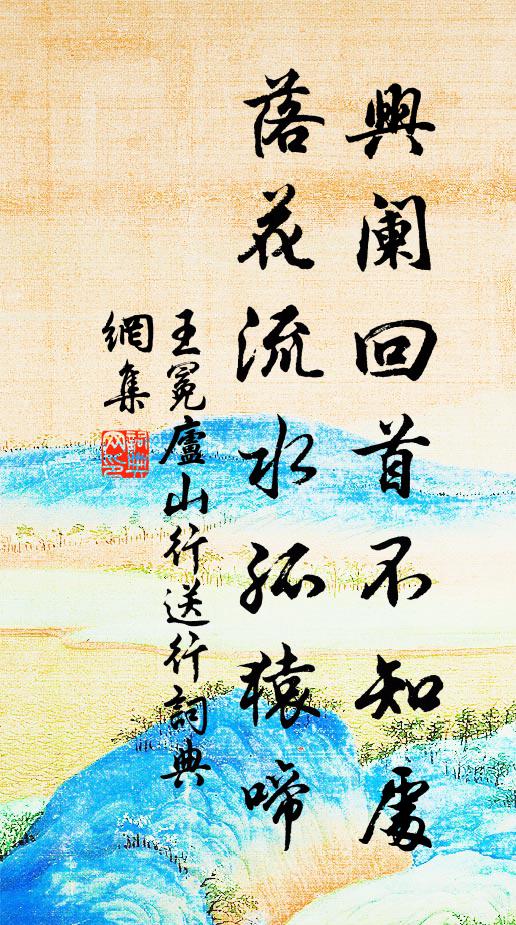 興阑回首不知處
落花流水孤猿啼
王冕廬山行送行詞典
網集